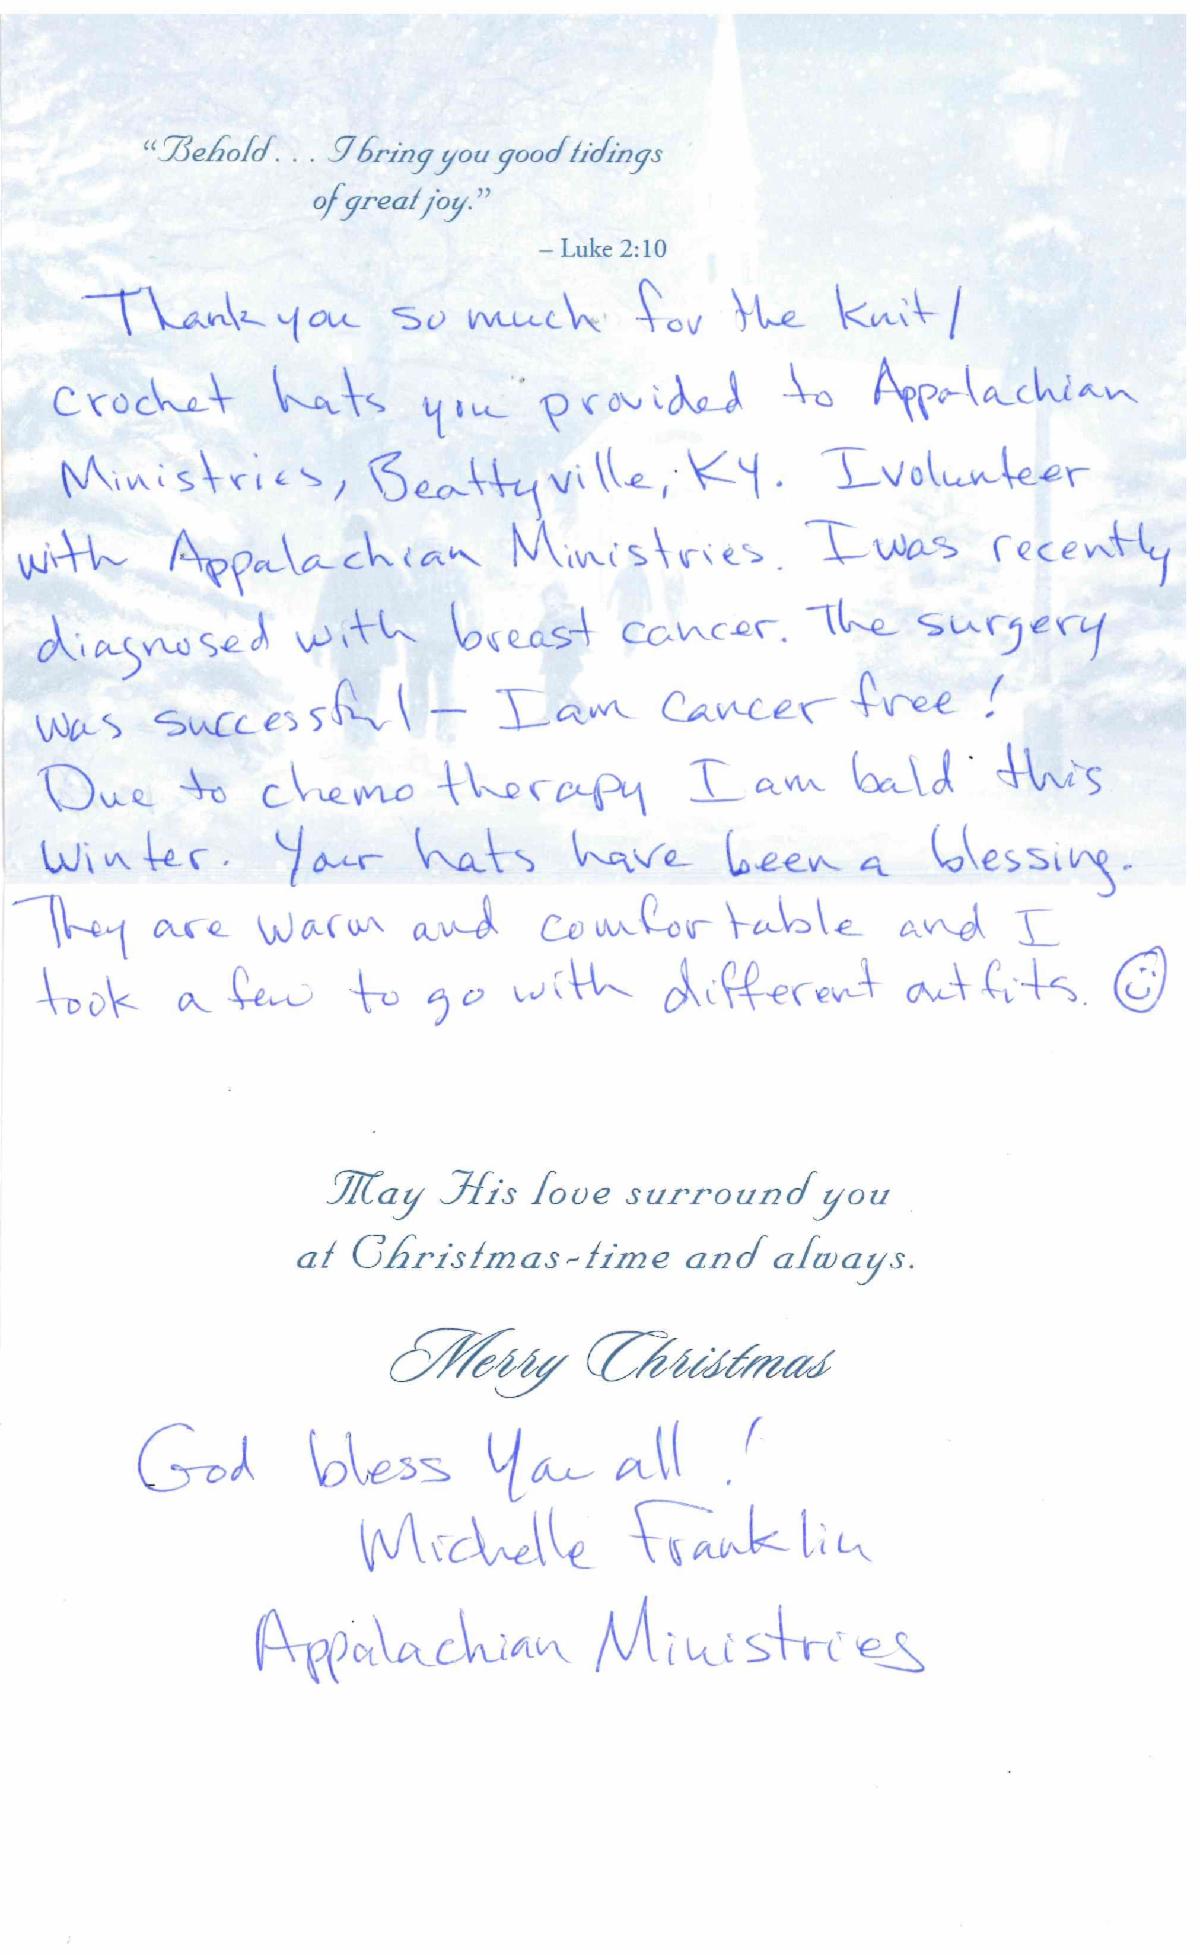 “Behold. . . I bring you good tidings
of great joy.”
– Luke 2:10
Thank you so much for the knit/
crochet hats you provided to Appalachian
Ministries, Beattyville, KY. I volunteer
with Appalachian Ministries. I was recently
diagnosed with breast cancer. The surgery
was successful – I am cancer free!
Due to chemo therapy I am bald this
winter. Your hats have been a blessing.
They are warm and comfortable and I
took a few to go with different outfits. ☺
May His love surround you
at Christmas-time and always.
Merry Christmas
God bless you all!
Michelle Franklin
Appalachian Ministries